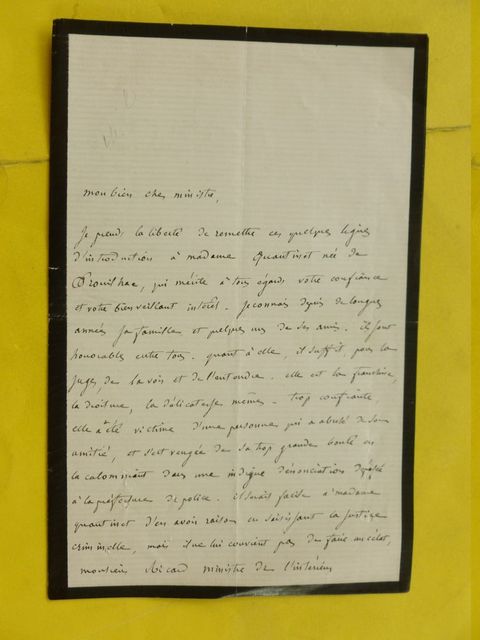 mon bien cher ministre,
Je prends la liberté de remettre ces quelques lignes
d'introduction à madame Quantinet née de
Drouilhac, qui mérite à tous égards votre confiance
et votre bienveillant intérêt. Je connais depuis de longues
années sa famille et quelques uns de ses amis. ils sont
honorables entre tous. quant à elle, il suffit, pour la
juger, de la voir et de l'entendre. elle est la franchise,
la droiture, la délicatesse même. trop confiante,
elle a été victime d'une personne qui a abusé de son
amitié, et s'est vengée de sa trop grande bonté en
la calomniant dans une indigne dénonciation
à la préfecture de police. il serait facile à madame
quantinet d'en avoir raison en saisissant la justice
criminelle, mais il ne lui convient pas de faire un éclat,
monsieur Ricard ministre de l'intérieur